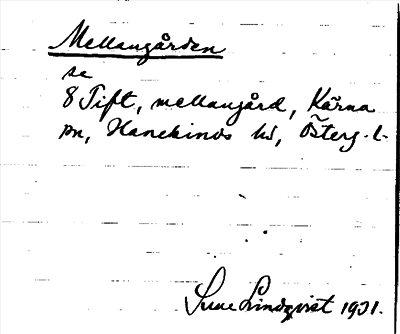 Mellangården
se
8 Tift, mellangård, Kärna
sn, Hanekinds hd, Österg. l.
Sune Lindqvist 1931.